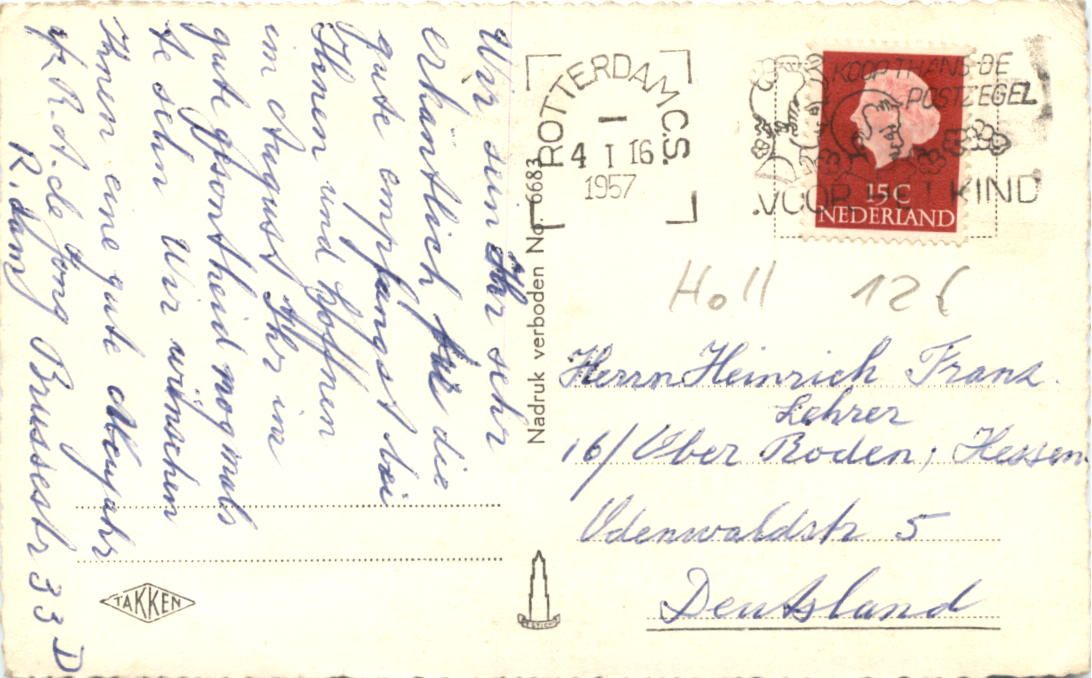 Wir sein Ihr sehr
erkäntlich für die
gute empfangst bei
Ihnen und hoffnen
im August Ihr in
gute gesontheid nogmals
te sehn Wir wünschen
Ihnen eine gute Neujahr
R.A. de Jong Brussestr 33 D
R.dam
ROTTERDAM C.S.
4 I 16
1957
KOOP THANS DE
POSTZEGEL
VOOR HET KIND
15 C
NEDERLAND
Holl 126
Nadruk verboden No. 6683
Herrn Heinrich Franz.
Lehrer
16/ Ober Roden, Hessen.
Odenwaldstr 5
Deutsland
TAKKEN